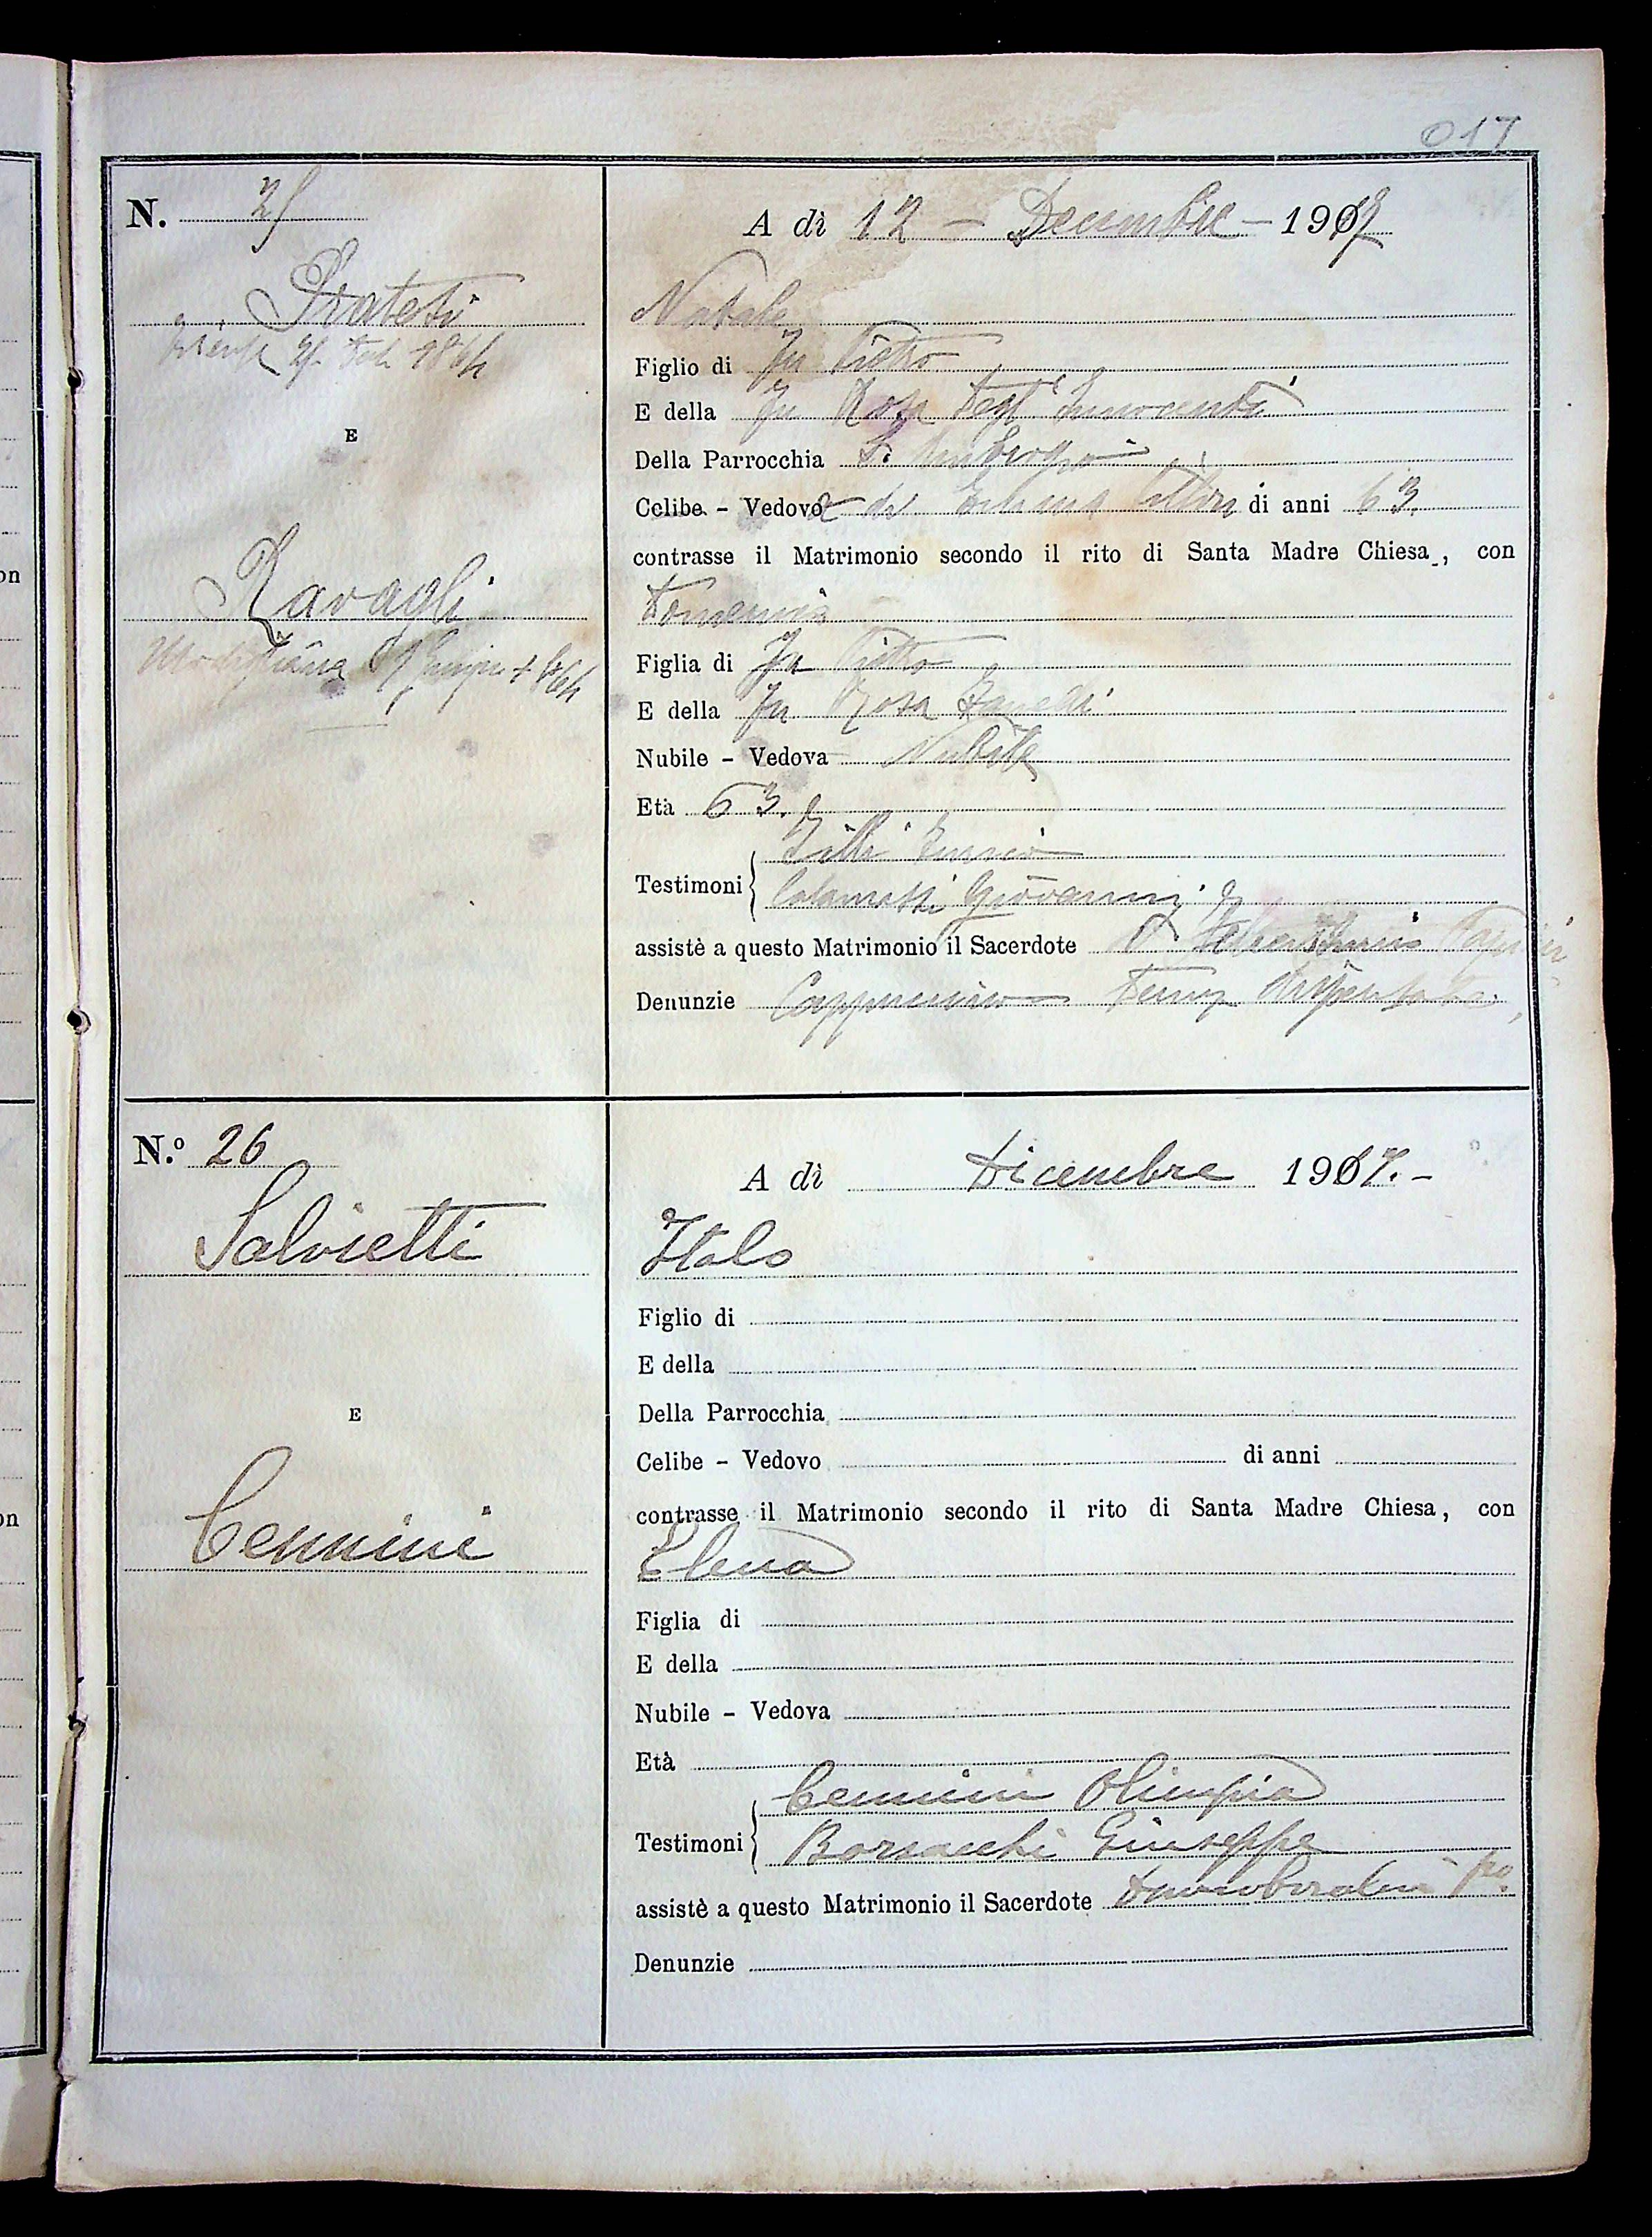 017
N. 25
Pratesi
E
Ravagli
A dì 12 - Decembre - 1917
Natale
Figlio di Fu Pietro
E della Fu Rosa Degl'Innocenti
Della Parrocchia S. Ambrogio
Celibe - Vedovo di anni 63.
contrasse il Matrimonio secondo il rito di Santa Madre Chiesa, con
Domenica
Figlia di Fu Pietro
E della Fu Rosa
Nubile - Vedova Nubile
Età 63.
Testimoni
Giovanni
assistè a questo Matrimonio il Sacerdote
Denunzie Cappuccino
N.o 26
Salvietti
E
Cennini
A dì Dicembre 1917. -
Italo
Figlio di
E della
Della Parrocchia
Celibe - Vedovo di anni
contrasse il Matrimonio secondo il rito di Santa Madre Chiesa, con
Elena
Figlia di
E della
Nubile - Vedova
Età
Cennini Olimpia
Testimoni Borsacchi Giuseppe
assistè a questo Matrimonio il Sacerdote
Denunzie
on
on